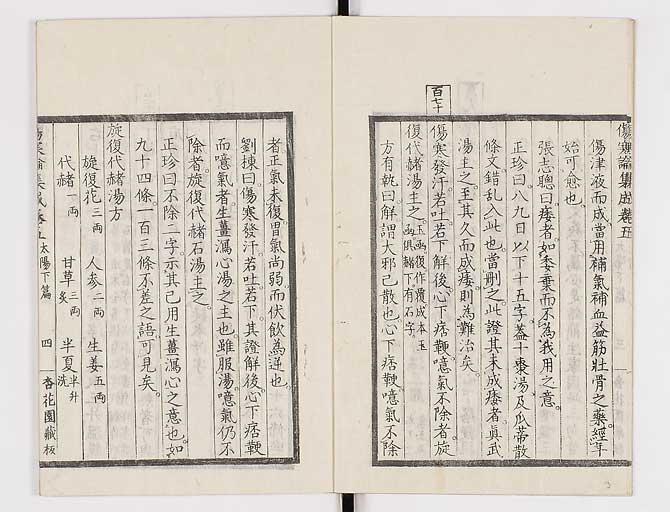 傷寒論集成卷五
傷津液而成當用補氣補血益筋壯骨之藥經年
始可愈也
張志聰曰痿者如委棄而不為我用之意
正珍曰八九日以下十五字蓋十棗湯及瓜蒂散
條文錯乱入此也當刪之此證其未成痿者眞武
湯主之至其久而成痿則為難治矣
百七十
傷寒發汗若吐若下解後心下痞鞕噫氣不除者旋
復代赭湯主之玉函復作覆成本玉
函俱赭下有石字
方有執曰解謂大邪已散也心下痞鞕噫氣不除
者正氣未復胃氣尚弱而伏飲為逆也
劉棟曰傷寒發汗若吐若下其證解後心下痞鞕
而噫氣者生薑瀉心湯之主也雖服湯噫氣仍不
除者旋復代赭石湯主之
正珍曰不除二字示其已用生薑瀉心之意也如
九十四條一百三條不差之語可見矣
旋復代赭湯方
旋復花三両 人参二両 生姜五両
代赭一両 甘草三両炙 半夏半升洗
太陽下篇 四 杏花園藏板